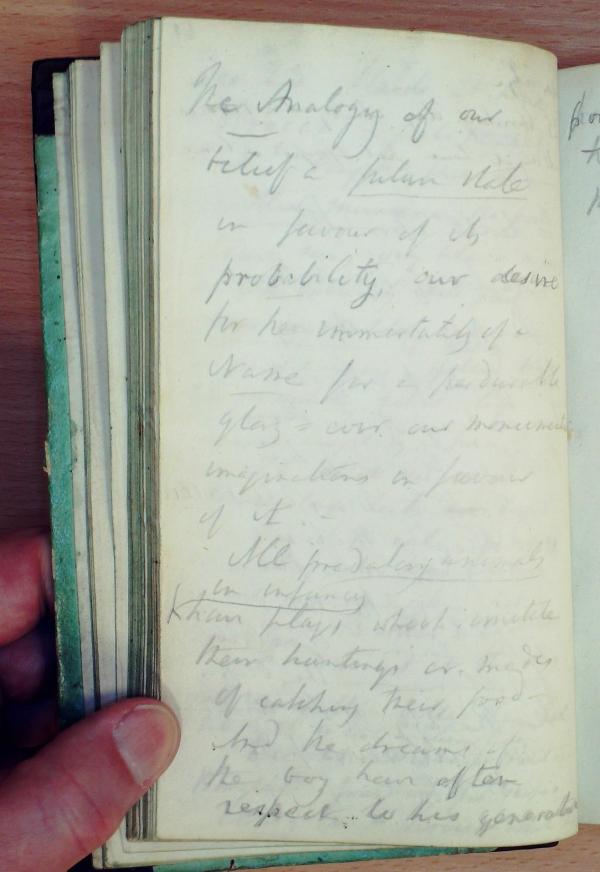 The Analogy of our
belief a future state
in favour of its
probability, our desire
for the immortality of a
Name for a perdurable
glory = our our monuments
imaginations in favour
of it. –
All predatory animals
in infancy
have plays which imitate
their huntings or modes
of catching their food –
And the dreams of
the boy have often
respect to his general